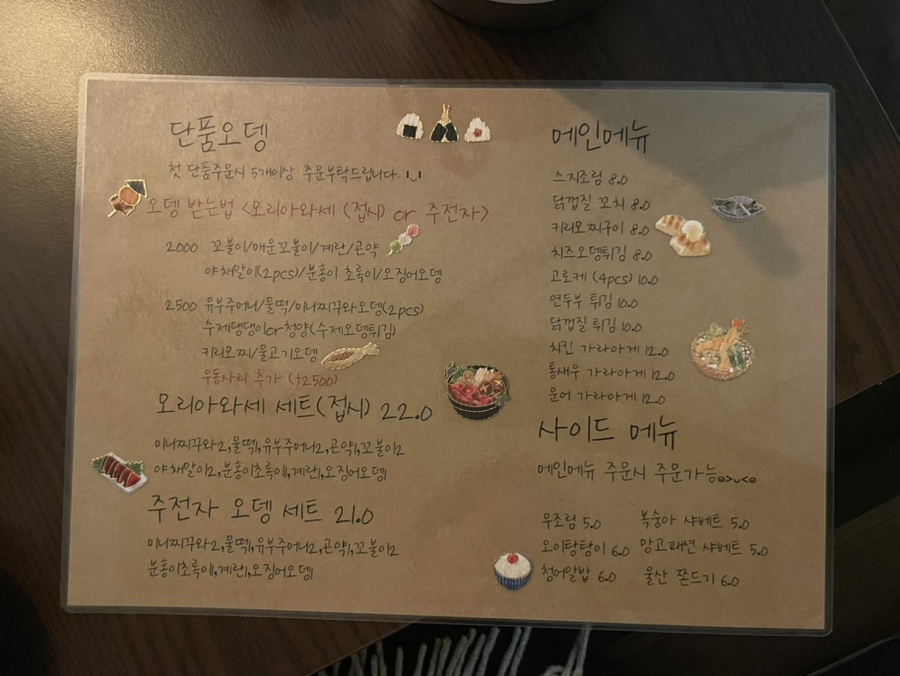 단품오뎅
첫 단품주문시 5개이상 주문부탁드립니다.
오뎅 받는법 <모리아와세 (접시) or 주전자>
2000 꼬불이/매운꼬불이/계란/곤약
야채말이(2pcs)/분홍이 초록이/오징어오뎅
2500 유부주머니/물떡/이나찌꾸와오뎅(2pcs)
수제댕댕이or청양(수제오뎅튀김)
키리모찌/물고기오뎅
우동사리 추가 (+2500)
모리아와세 세트(접시) 22.0
이나찌꾸와2,물떡1,유부주머니2,곤약1,꼬불이2
야채말이2,분홍이초록이1,계란1,오징어오뎅1
주전자 오뎅 세트 21.0
이나찌꾸와2,물떡1,유부주머니2,곤약1,꼬불이2
분홍이초록이1,계란1,오징어오뎅1
메인메뉴
스지조림 8.0
닭껍질 꼬치 8.0
키리모찌구이 8.0
치즈오뎅튀김 8.0
고로케 (4pcs) 10.0
연두부 튀김 10.0
닭껍질 튀김 10.0
치킨 가라아게 12.0
통새우 가라아게 12.0
문어 가라아게 12.0
사이드 메뉴
메인메뉴 주문시 주문가능
무조림 5.0 복숭아 샤베트 5.0
오이탕탕이 6.0 망고패션 샤베트 5.0
청어알밥 6.0 울산 쫀드기 6.0